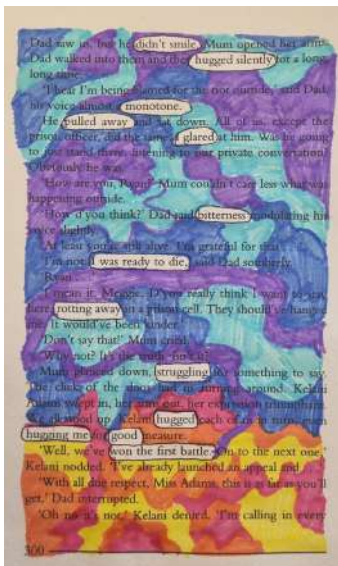 Dad saw us, but he didn't smile. Mum opened her arms.
Dad walked into them and they hugged silently for a long,
long time.
'I hear I'm being blamed for the riot outside,' said Dad,
his voice almost monotone.
He pulled away and sat down. All of us, except the
prison officer, did the same. I glared at him. Was he going
to just stand there, listening to our private conversation?
Obviously he was.
'How are you, Ryan?' Mum couldn't care less what was
happening outside.
'How d'you think?' Dad said, bitterness modulating his
voice slightly.
'At least you're still alive. I'm grateful for that . . .'
'I'm not. I was ready to die,' said Dad sombrely.
'Ryan . . .'
'I mean it, Meggie. D'you really think I want to stay
here rotting away in a prison cell. They should've hanged
me. It would've been kinder.'
'Don't say that!' Mum cried.
'Why not? It's the truth, isn't it?'
Mum glanced down, struggling for something to say.
The click of the door had us turning around. Kelani
Adams swept in, her arms out, her expression triumphant.
We all stood up. Kelani hugged each of us in turn,
hugging me for good measure.
'Well, we've won the first battle. On to the next one,'
Kelani nodded. 'I've already launched an appeal and
'With all due respect, Miss Adams, this is as far as you'll
get,' Dad interrupted.
'Oh no it's not,' Kelani denied. 'I'm calling in every
300